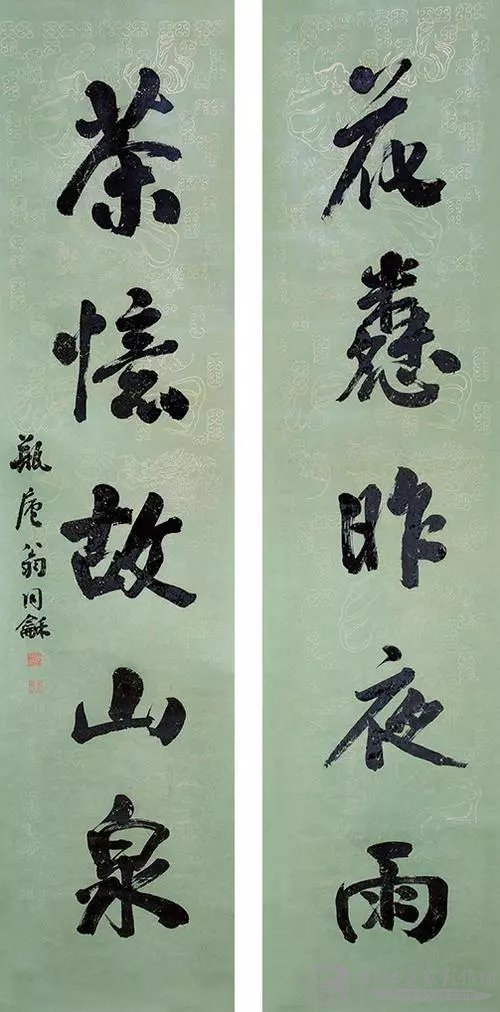 花昨夜雨
茶憶故山泉
瓶庐翁同龢